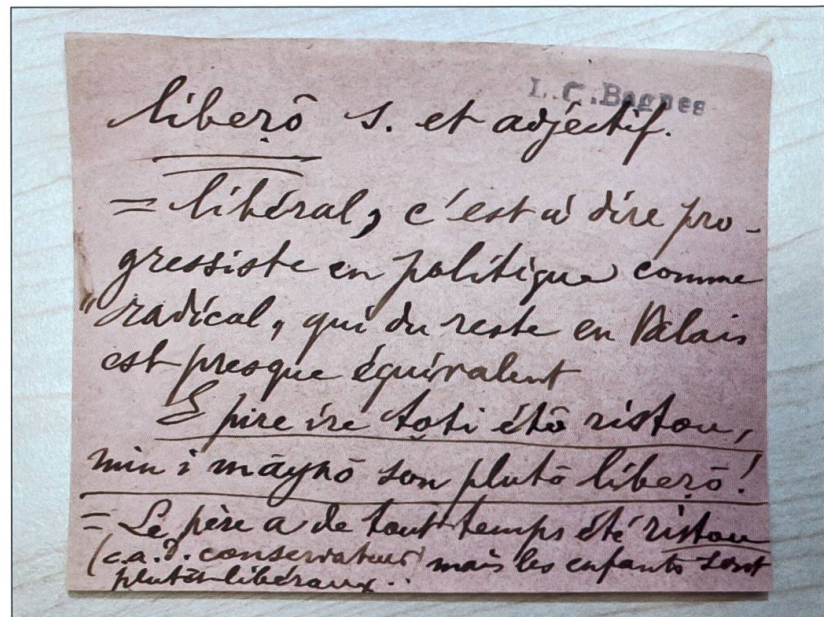 L. C. Bagnes
liberọ̄ s. et adjectif.
= libéral, c'est à dire pro-
gressiste en politique comme
"radical„ qui du reste en Valais
est presque équivalent
E pire ire tọti étō ristou,
min i māynō son plutō liberọ̄!
= Le père a de tout temps été ristou
(c.a.d. conservateur) mais les enfants sont
plutôt libéraux.